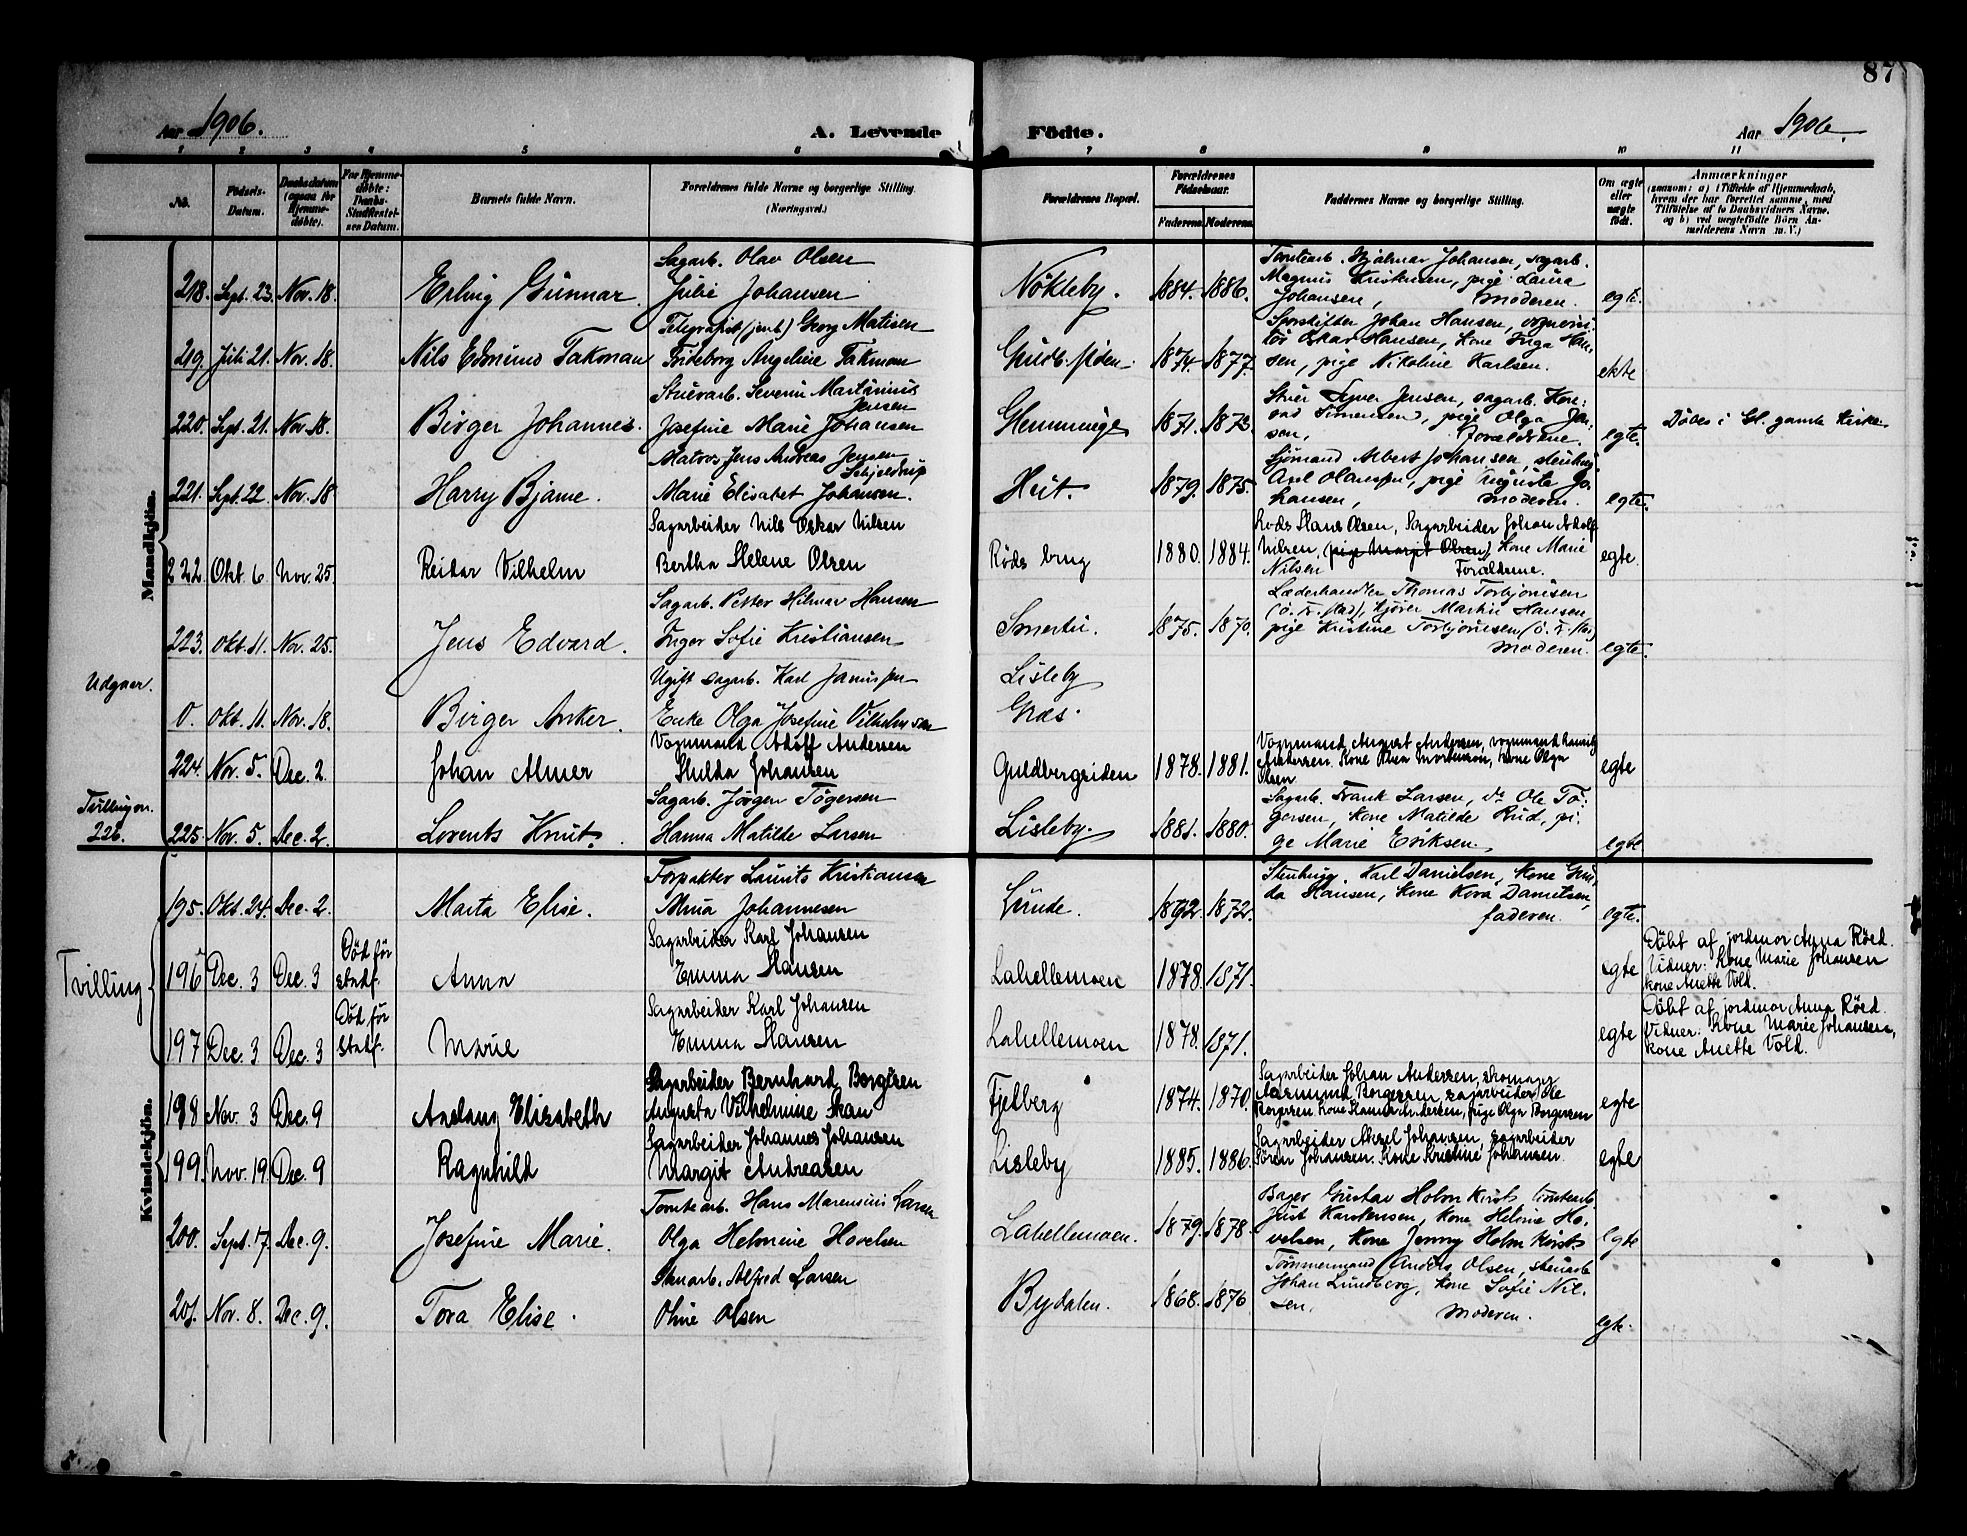 87
Aar 1906.
A. Levende Födte.
Aar 1906.
1 2 3 4 5 6 7 8 9 10 11
No.
Födsels-Datum.
Daabsdatum (ogsaa for Hjemmedöbte).
For Hjemmedöbte: Daabs-Stadfæstelses Datum.
Barnets fulde Navn.
Forældrenes fulde Navne og borgerlige Stilling.
(Næringsvei.)
Forældrenes Bopæl.
Forældrenes Födselsaar.
Faderens Moderens
Faddernes Navne og borgerlige Stilling.
Om ægte eller uægte födt.
Anmærkninger
(saasom: a) i Tilfælde af Hjemmedaab,
hvem der har forrettet samme, med
Tilföielse af to Daabsvidners Navne,
og b) ved uægtefödte Börn Anmelderens Navn m. V.)
Mandkjön.
218. Sept. 23. Nov. 18. Erling Gunnar.
Sagarb. Olav Olsen
Julie Johansen
Nökleby. 1884. 1886.
Tomtearb. Hjalmar Johansen, sagarb.
Magnus Kristensen, pige Laura
Johansen, Moderen. egte.
219. Juli 21. Nov. 18. Nils Edmund Takman
Telegrafist (jernb.) Georg Matisen
Frideborg Angeline Takman
Guldb.siden. 1874. 1877.
Sporskifter Johan Hansen, vognvisi-
tör Oskar Hansen, Kone Inga Han-
sen, pige Nikoline Karlsen. ekte
220. Sept. 21. Nov. 18. Birger Johannes.
Stuerarb. Severin Martinius
Jensen
Josefine Marie Johansen
Hemminge 1871. 1873.
Jensen, sagarb. Kon-
rad Simensen, pige Olga Jen-
sen, Forældrene. egte.
Döbes i Gl. gamle Kirke
221. Sept. 22 Nov. 18 Harry Bjarne.
Matros Jens Andreas Jensen
Schjeldrup
Marie Elisabet Johansen.
Hvit. 1879. 1875.
Sjömand Albert Johansen, stenhug.
Axel Olaussen, pige Auguste Jo-
hansen, Moderen. egte.
222. Okt. 6 Nov. 25. Reidar Vilhelm
Sagarbeider Nils Oskar Nilsen
Bertha Helene Olsen
Röds brug 1880. 1884.
Lods Hans Olsen, Sagarbeider Johan Adolf
Nilsen, (pige Margit Olsen) Kone Marie
Nilsen Forælderne. egte.
223. Okt. 11. Nov. 25. Jens Edvard.
Sagarb. Petter Hilmar Hansen
Inger Sofie Kristiansen
Smertu. 1875. 1870.
Læderhandler Thomas Torbjörnsen
(ö. F.stad), kjörer Martin Hansen,
pige Kristine Torbjörnsen (ö. F.stad)
Moderen. egte.
Udgaar.
0. Okt. 11. Nov. 18. Birger Anker.
Ugift sagarb. Karl Janussen
Enke Olga Josefine Vilhelmsen
Lisleby
Græs.
224. Nov. 5. Dec. 2 Johan Almer
Vognmand Adolf Andersen
Hulda Johansen
Guldbergsiden 1878. 1881.
Vognmand August Andersen, vognmand Lauritz
Andersen. Kone Thea Mortenson, kone Olga
Olsen egte
Tvilling
226.
225. Nov. 5 Dec. 2. Lorents Knut.
Sagarb. Jörgen Tögersen
Hanna Matilde Larsen
Lisleby. 1881. 1880.
Sagarb. Frank Larsen, do Ole Tö-
gersen, Kone Matilde Rud, pi-
ge Marie Eriksen. egte.
Kvindekjön.
195. Okt. 24. Dec. 2. Marta Elise.
Forpakter Laurits Kristiansen
Mina Johannesen
Lunde. 1892. 1872.
Stenhugg. Karl Danielsen, Kone Gun-
da Hansen, Kone Kora Danielsen,
faderen. egte.
Tvilling
196 Dec. 3 Dec. 3 Död för stadf. Anna
Sagarbeider Karl Johansen
Emma Hansen
Lahellemoen 1878. 1871. egte
Döbt af jordmor Anna Röed.
Vidner: Kone Marie Johansen
kone Anette Vold.
197 Dec. 3 Dec. 3 Död för stadf. Marie
Sagarbeider Karl Johansen
Emma Hansen
Lahellemoen 1878. 1871. egte
Döbt af jordmor Anna Röed.
Vidner: Kone Marie Johansen,
kone Anette Vold.
198 Nov. 3 Dec. 9 Aslaug Elisabeth
Sagarbeider Bernhard Borgersen
Augusta Vilhelmine Skau
Fjelberg 1874. 1870.
Sagarbeider Johan Andersen, skomager
Aasmund Borgersen, sagarbeider Ole
Borgersen Kone Hanna Andersen, pige Olga Borgersen egte
199. Nov. 19. Dec. 9 Ragnhild
Sagarbeider Johannes Johansen
Margit Andreasen
Lisleby 1885. 1886.
Sagarbeider Aksel Johansen, sagarbeider
Sören Johansen. Kone Kristine Johansen. egte
200. Sept. 17. Dec. 9. Josefine Marie.
Tomtearb. Hans Marensius Larsen
Olga Helmine Hovelsen
Lahellemoen. 1879. 1878.
Bager Gustav Holm Kirsts tomtearb.
Just Karstensen, kone Helmine Ho-
velsen, Kone Jenny Holm Kirsts egte
201. Nov. 8. Dec. 9. Tora Elise.
Stenarb. Alfred Larsen
Oline Olsen
Bydalen. 1868. 1876
Tömmermand Anders Olsen, stenarb.
Johan Lundberg, kone Sofie Nil-
sen. Moderen. egte.